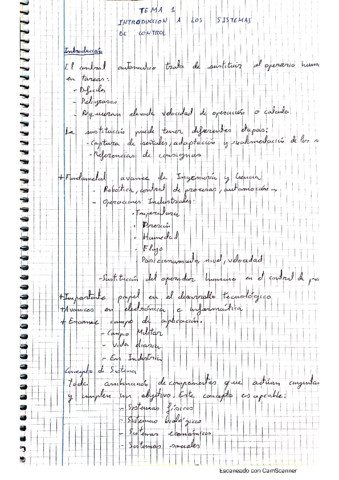 TEMA 1
INTRODUCCION A LOS SISTEMAS
DE CONTROL
Introducción
El control automático trata de sustituir al operario hum
en tareas:
- Difíciles
- Peligrosas
- Requieran elevada velocidad de operación o cálculo
La sustitución puede tener diferentes etapas:
- Captura de señales, adaptación y realimentación de los
- Referencias de consignas
+ Fundamental avance de Ingeniería y Ciencia
- Robótica, control de procesos, automoción
- Operaciones Industriales:
· Temperatura
· Presión
· Humedad
· Flujo
Posicionamiento, nivel, velocidad
- Sustitución del operador humano en el control de pro
+ Importante papel en el desarrollo tecnológico
+ Avances en electrónica e informática
+ Enorme campo de aplicación.
- Campo Militar
- Vida diaria
- En Industria
Concepto de Sistema
Toda combinación de componentes que actúan conjunta
y cumplen un objetivo. Este concepto es aplicable:
- Sistemas físicos
- Sistemas biológicos
- Sistemas económicos
- Sistemas sociales
Escaneado con CamScanner